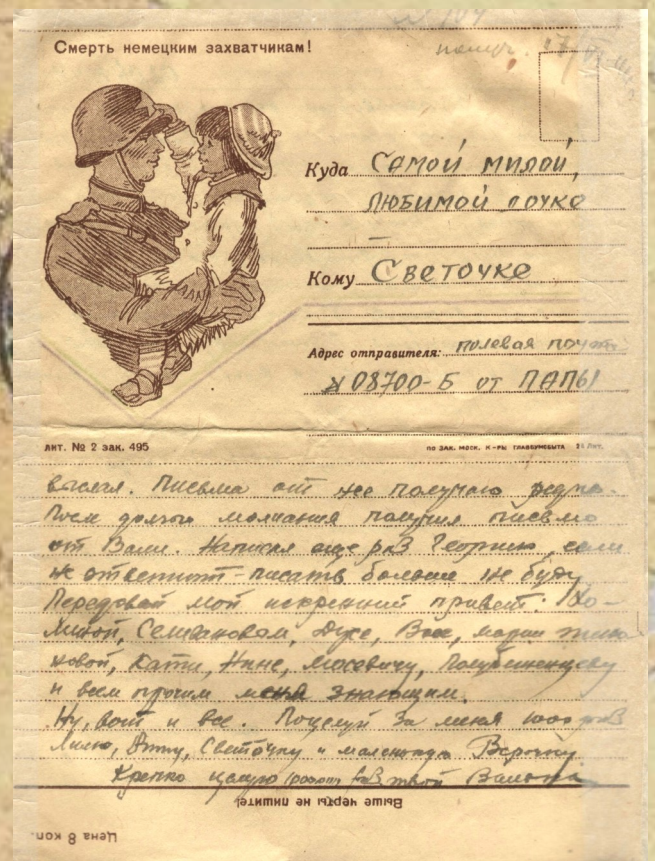 Смерть немецким захватчикам!
Куда Самой милой,
любимой дочке
Кому Светочке
Адрес отправителя: полевая почта
№ 08700-Б от ПАПЫ
лит. № 2 зак. 495
ПО ЗАК. МОСК. К-РЫ ГЛАВБУМСБЫТА
выслал. Письма от получаю редко.
После долгого молчания получил письмо
от Вали. Написал еще раз Георгию, если
не ответит - писать больше не буду
Передавай мой искренний привет:
Селивановым, Дусе, Вале, Марии
Кати, Нине,
и всем прочим меня знающим.
Ну, вот и все. Поцелуй за меня 1000 раз
Светочку и маленькую Верочку.
Крепко целую раз твой
Выше черты не пишите!
Цена 8 коп.